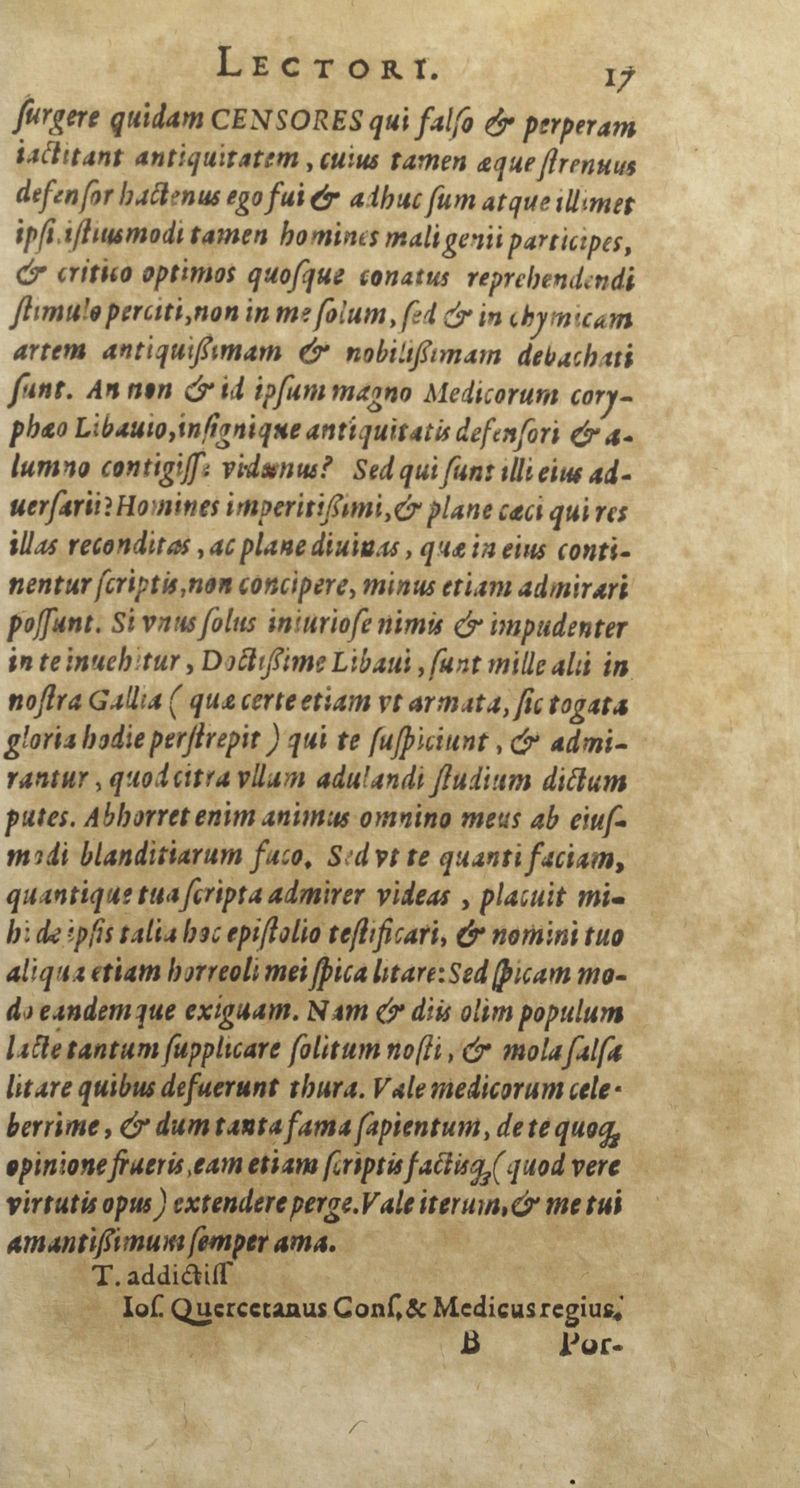 LECTORI. 17
ſurgere quidam CENSORES qui falſo & perperam
iactitant antiquitatem, cuius tamen æque ſtrenuus
defenſor hactenus ego fui & adhuc ſum atque illimet
ipſi. iſtiusmodi tamen homines mali genii participes,
& critico optimos quoſque conatus reprehendendi
ſtimulo perciti, non in me ſolum, ſed & in chymicam
artem antiquiſsimam & nobiliſsimam debachati
ſunt. An non & id ipſum magno Medicorum cory-
phæo Libauio, inſignique antiquitatis defenſori & a-
lumno contigiſſe videmus? Sed qui ſunt illi eius ad-
uerſarii? Homines imperitiſsimi, & plane cæci qui res
illas reconditas, ac plane diuinas, quæ in eius conti-
nentur ſcriptis, non concipere, minus etiam admirari
poſſunt. Si vnus ſolus iniurioſe nimis & impudenter
in te inuehitur, Doctiſsime Libaui, ſunt mille alii in
noſtra Gallia ( quæ certe etiam vt armata, ſic togata
gloria hodie perſtrepit ) qui te ſuſpiciunt, & admi-
rantur, quod citra vllum adulandi ſtudium dictum
putes. Abhorret enim animus omnino meus ab eiuſ-
modi blanditiarum fuco. Sed vt te quanti faciam,
quantique tua ſcripta admirer videas, placuit mi-
hi de ipſis talia hoc epiſtolio teſtificari, & nomini tuo
aliqua etiam horreoli mei ſpica litare: Sed ſpicam mo-
do eandemque exiguam. Nam & diis olim populum
lacte tantum ſupplicare ſolitum noſti, & mola ſalſa
litare quibus defuerunt thura. Vale medicorum cele-
berrime, & dum tanta fama ſapientum, de te quoq;
opinione frueris, eam etiam ſcriptis factisq; ( quod vere
virtutis opus ) extendere perge. Vale iterum, & me tui
amantiſsimum ſemper ama.
T. addictiſſ
Ioſ. Quercetanus Conſ. & Medicus regius.
B Por-